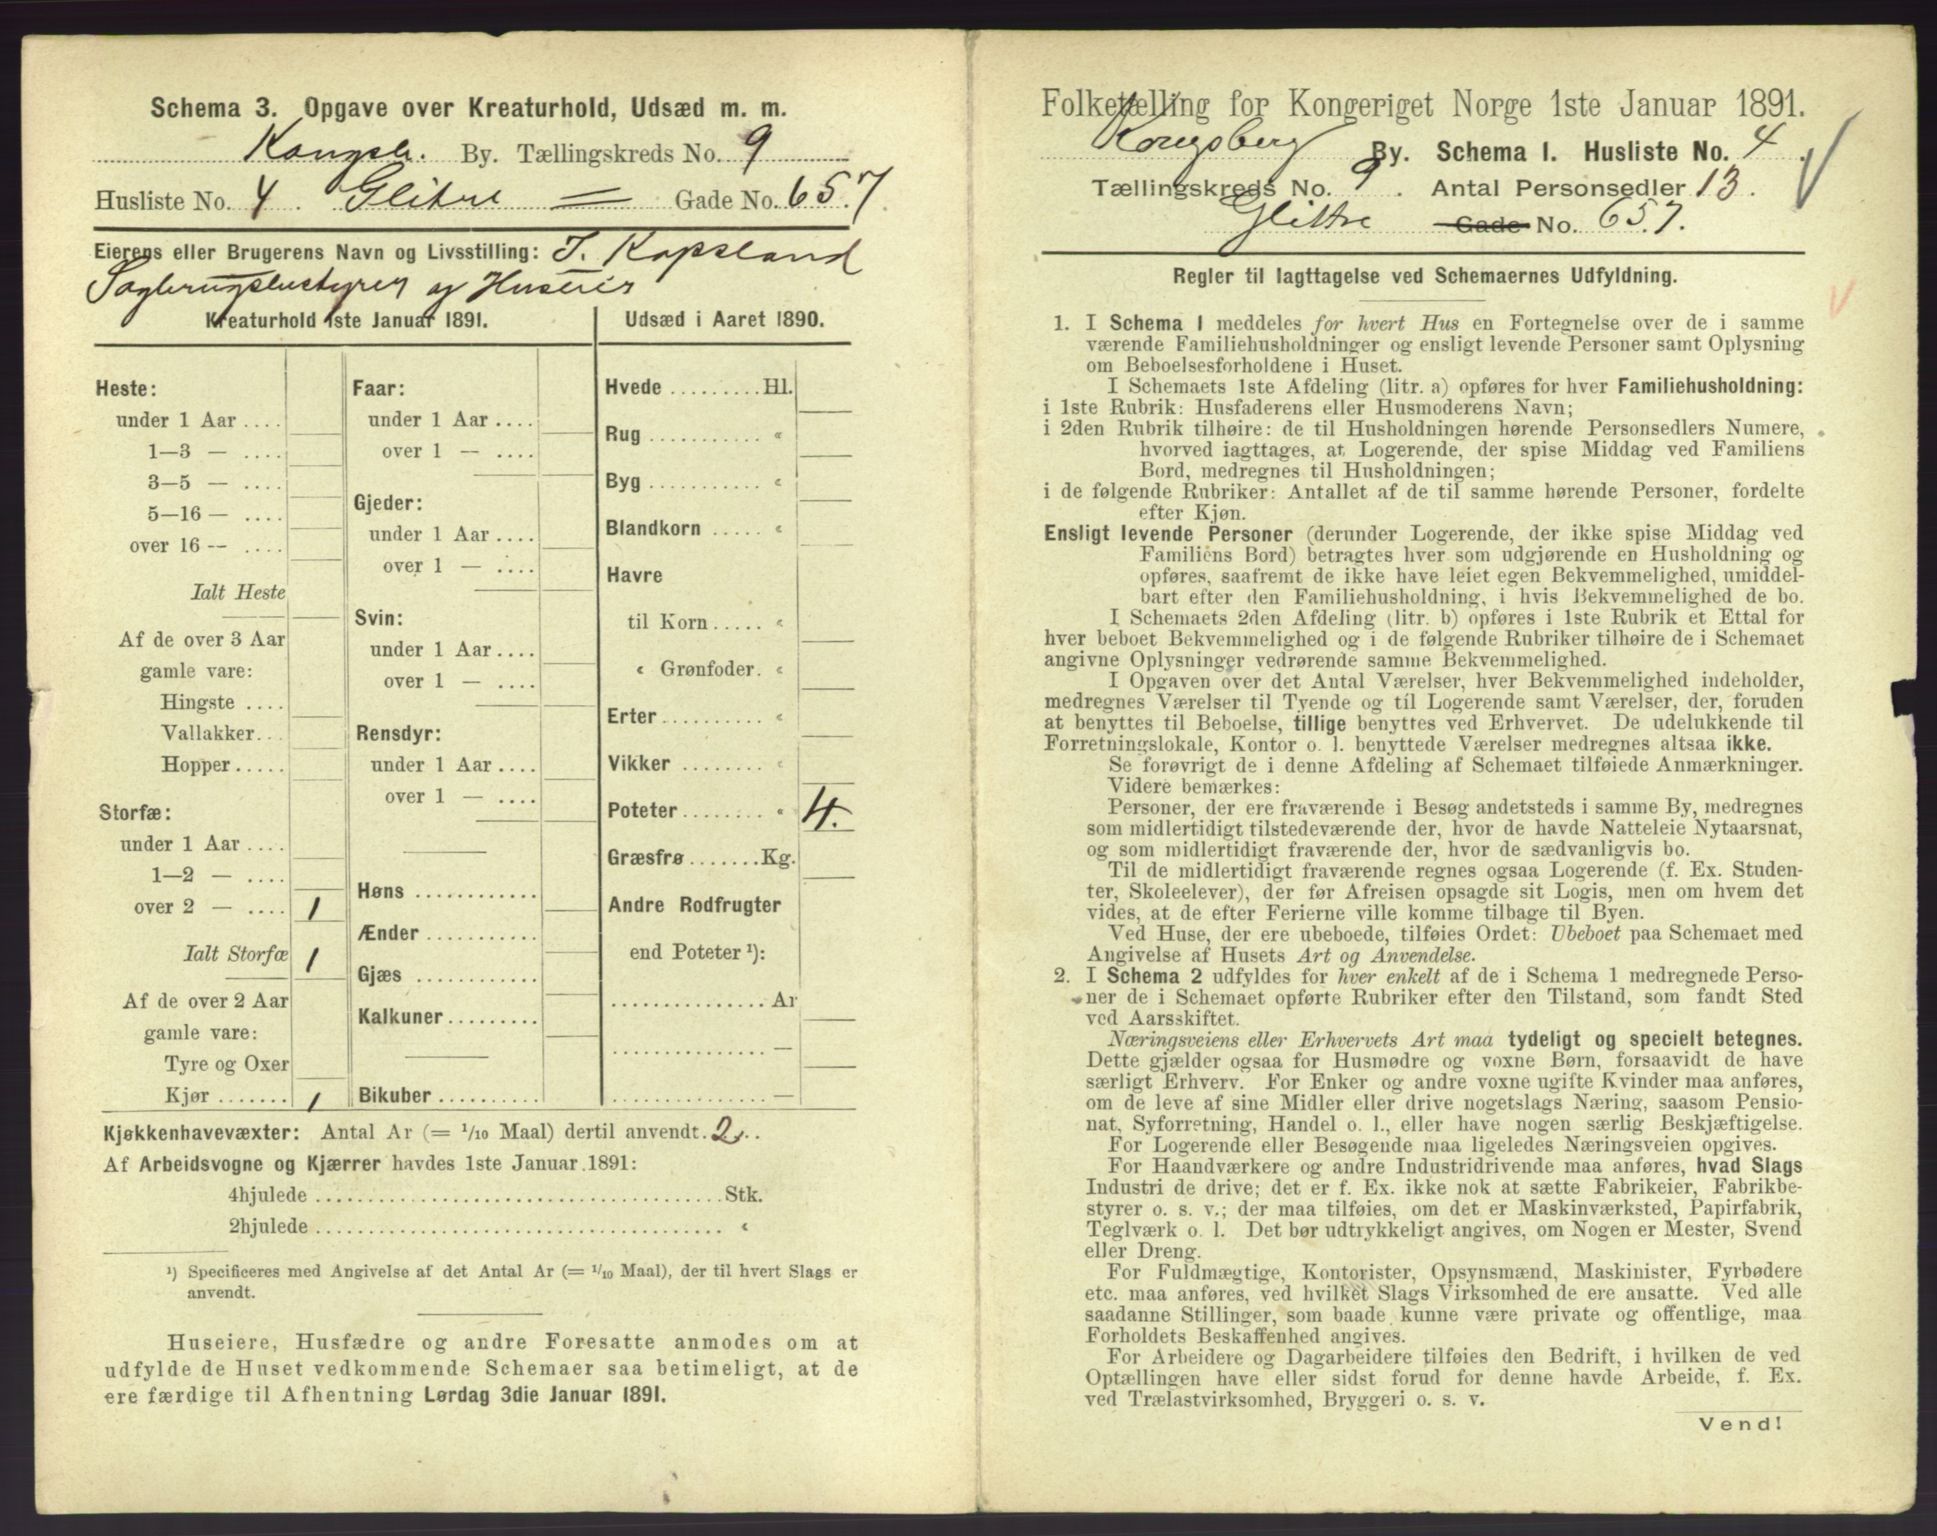 Schema 3. Opgave over Kreaturhold, Udsæd m. m.
Kongsb. By. Tællingskreds No. 9
Husliste No. 4 . Glitre = Gade No. 657.
Eierens eller Brugerens Navn og Livsstilling: T. Kopsland
Sagbrugsbestyrer og Huseier
Kreaturhold 1ste Januar 1891.
Heste:
under 1 Aar ....
1—3 — ....
3—5 — ....
5—16 — ....
over 16 — ....
Ialt Heste
Af de over 3 Aar
gamle vare:
Hingste ....
Vallakker...
Hopper.....
Storfæ:
under 1 Aar ....
1—2 — ....
over 2 — .... 1
Ialt Storfæ 1
Af de over 2 Aar
gamle vare:
Tyre og Oxer
Kjør ....... 1
Faar:
under 1 Aar ....
over 1 — ....
Gjeder:
under 1 Aar ....
over 1 — ....
Svin:
under 1 Aar ....
over 1 — ....
Rensdyr:
under 1 Aar ....
over 1 — ....
Høns ............
Ænder ...........
Gjæs ............
Kalkuner .........
Bikuber ..........
Udsæd i Aaret 1890.
Hvede ......... Hl.
Rug ........... «
Byg ........... «
Blandkorn ..... «
Havre
til Korn ..... «
« Grønfoder. «
Erter .......... «
Vikker ........ «
Poteter ........ « 4.
Græsfrø ....... Kg.
Andre Rodfrugter
end Poteter ¹):
............... Ar
............... —
............... —
Kjøkkenhavevæxter: Antal Ar (= 1/10 Maal) dertil anvendt. 2 ..
Af Arbeidsvogne og Kjærrer havdes 1ste Januar 1891:
4hjulede ........................................ Stk.
2hjulede ........................................ «
¹) Specificeres med Angivelse af det Antal Ar (= 1/10 Maal), der til hvert Slags er
anvendt.
Huseiere, Husfædre og andre Foresatte anmodes om at
udfylde de Huset vedkommende Schemaer saa betimeligt, at de
ere færdige til Afhentning Lørdag 3die Januar 1891.
Folketælling for Kongeriget Norge 1ste Januar 1891.
Kongsberg By. Schema I. Husliste No. 4 .
Tællingskreds No. 9 . Antal Personsedler 13.
Glittre Gade No. 657.
Regler til Iagttagelse ved Schemaernes Udfyldning.
1. I Schema I meddeles for hvert Hus en Fortegnelse over de i samme
værende Familiehusholdninger og ensligt levende Personer samt Oplysning
om Beboelsesforholdene i Huset.
I Schemaets 1ste Afdeling (litr. a) opføres for hver Familiehusholdning:
i 1ste Rubrik: Husfaderens eller Husmoderens Navn;
i 2den Rubrik tilhøire: de til Husholdningen hørende Personsedlers Numere,
hvorved iagttages, at Logerende, der spise Middag ved Familiens
Bord, medregnes til Husholdningen;
i de følgende Rubriker: Antallet af de til samme hørende Personer, fordelte
efter Kjøn.
Ensligt levende Personer (derunder Logerende, der ikke spise Middag ved
Familiens Bord) betragtes hver som udgjørende en Husholdning og
opføres, saafremt de ikke have leiet egen Bekvemmelighed, umiddel-
bart efter den Familiehusholdning, i hvis Bekvemmelighed de bo.
I Schemaets 2den Afdeling (litr. b) opføres i 1ste Rubrik et Ettal for
hver beboet Bekvemmelighed og i de følgende Rubriker tilhøire de i Schemaet
angivne Oplysninger vedrørende samme Bekvemmelighed.
I Opgaven over det Antal Værelser, hver Bekvemmelighed indeholder,
medregnes Værelser til Tyende og til Logerende samt Værelser, der, foruden
at benyttes til Beboelse, tillige benyttes ved Erhvervet. De udelukkende til
Forretningslokale, Kontor o. l. benyttede Værelser medregnes altsaa ikke.
Se forøvrigt de i denne Afdeling af Schemaet tilføiede Anmærkninger.
Videre bemærkes:
Personer, der ere fraværende i Besøg andetsteds i samme By, medregnes
som midlertidigt tilstedeværende der, hvor de havde Natteleie Nytaarsnat,
og som midlertidigt fraværende der, hvor de sædvanligvis bo.
Til de midlertidigt fraværende regnes ogsaa Logerende (f. Ex. Studen-
ter, Skoleelever), der før Afreisen opsagde sit Logis, men om hvem det
vides, at de efter Ferierne ville komme tilbage til Byen.
Ved Huse, der ere ubeboede, tilføies Ordet: Ubeboet paa Schemaet med
Angivelse af Husets Art og Anvendelse.
2. I Schema 2 udfyldes for hver enkelt af de i Schema 1 medregnede Perso-
ner de i Schemaet opførte Rubriker efter den Tilstand, som fandt Sted
ved Aarsskiftet.
Næringsveiens eller Erhvervets Art maa tydeligt og specielt betegnes.
Dette gjælder ogsaa for Husmødre og voxne Børn, forsaavidt de have
særligt Erhverv. For Enker og andre voxne ugifte Kvinder maa anføres,
om de leve af sine Midler eller drive nogetslags Næring, saasom Pensio-
nat, Syforretning, Handel o. l., eller have nogen særlig Beskjæftigelse.
For Logerende eller Besøgende maa ligeledes Næringsveien opgives.
For Haandværkere og andre Industridrivende maa anføres, hvad Slags
Industri de drive; det er f. Ex. ikke nok at sætte Fabrikeier, Fabrikbe-
styrer o. s. v.; der maa tilføies, om det er Maskinværksted, Papirfabrik,
Teglværk o. l. Det bør udtrykkeligt angives, om Nogen er Mester, Svend
eller Dreng.
For Fuldmægtige, Kontorister, Opsynsmænd, Maskinister, Fyrbødere
etc. maa anføres, ved hvilket Slags Virksomhed de ere ansatte. Ved alle
saadanne Stillinger, som baade kunne være private og offentlige, maa
Forholdets Beskaffenhed angives.
For Arbeidere og Dagarbeidere tilføies den Bedrift, i hvilken de ved
Optællingen have eller sidst forud for denne havde Arbeide, f. Ex.
ved Trælastvirksomhed, Bryggeri o. s. v.
Vend!